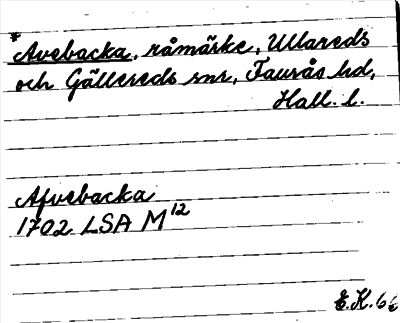 *
Avebacka, råmärke, Ullareds
och Gällereds snr, Faurås hd,
Hall. l.
Afvebacka
1702 LSA M 12
E.K. 66